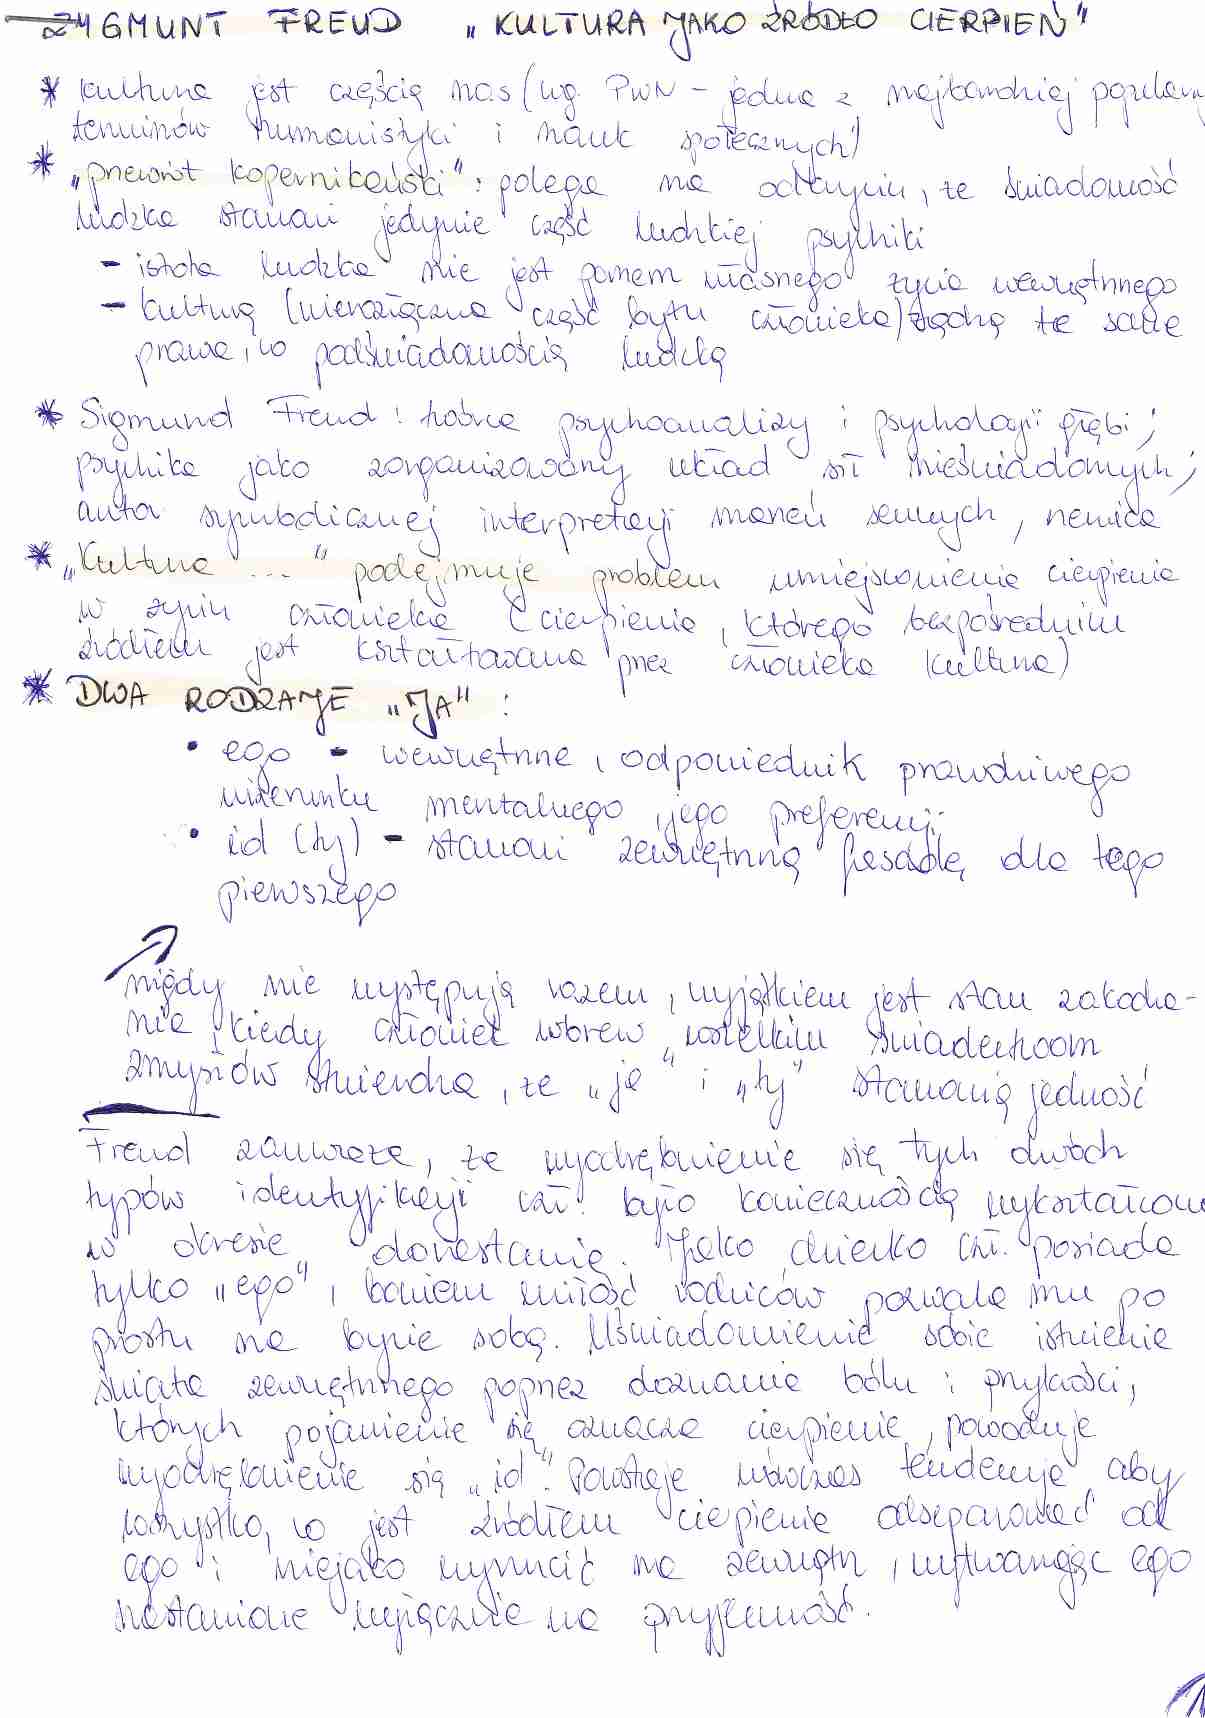 ZYGMUNT FREUD „KULTURA JAKO ŹRÓDŁO CIERPIEŃ"
* Kultura jest częścią nas (wg. PWN – jedna z najbardziej popularn
terminów humanistyki i nauk społecznych)
* „przewrót kopernikański": polega na odkryciu, że świadomość
ludzka stanowi jedynie część ludzkiej psychiki
– istota ludzka nie jest panem własnego życia wewnętrznego
– kulturą (nierozłączna część bytu człowieka) rządzą te same
prawa, co podświadomością ludzką
* Sigmund Freud: twórca psychoanalizy i psychologii głębi;
psychika jako zorganizowany układ sił nieświadomych;
autor symbolicznej interpretacji marzeń sennych, nerwica
* „Kultura ..." podejmuje problem umiejscowienia cierpienia
w życiu człowieka (cierpienia, którego bezpośrednim
źródłem jest kształtowana przez człowieka kultura)
* DWA RODZAJE „JA":
• ego – wewnętrzne, odpowiednik prawdziwego
wizerunku mentalnego i jego preferencji
• id (ty) – stanowi zewnętrzną fasadę dla tego
pierwszego
nigdy nie występują razem, wyjątkiem jest stan zakocha-
nia, kiedy człowiek wbrew wszelkim świadectwom
zmysłów stwierdza, że „ja" i „ty" stanowią jedność
Freud zauważa, że wyodrębnienie się tych dwóch
typów identyfikacji czł. było koniecznością wykształcon
w okresie dorastania. Jako dziecko czł. posiada
tylko „ego", bowiem miłość rodziców pozwala mu po
prostu na bycie sobą. Uświadomienie sobie istnienia
świata zewnętrznego poprzez doznanie bólu i przykrości,
których pojawienie się oznacza cierpienie, powoduje
wyodrębnienie się „id". Powstaje wówczas tendencja aby
wszystko, co jest źródłem cierpienia odseparować od
ego i niejako wyrzucić na zewnątrz, wytwarzając ego
nastawione wyłącznie na przyjemność.